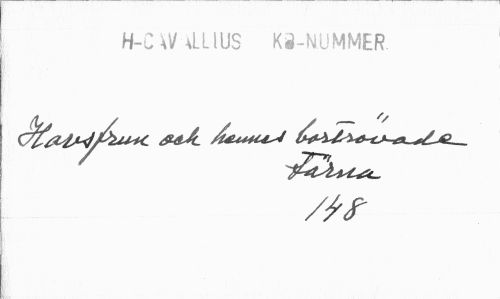 H-CAVALLIUS KB-NUMMER.
Havsfrun och hennes bortrövade
Tärna
148